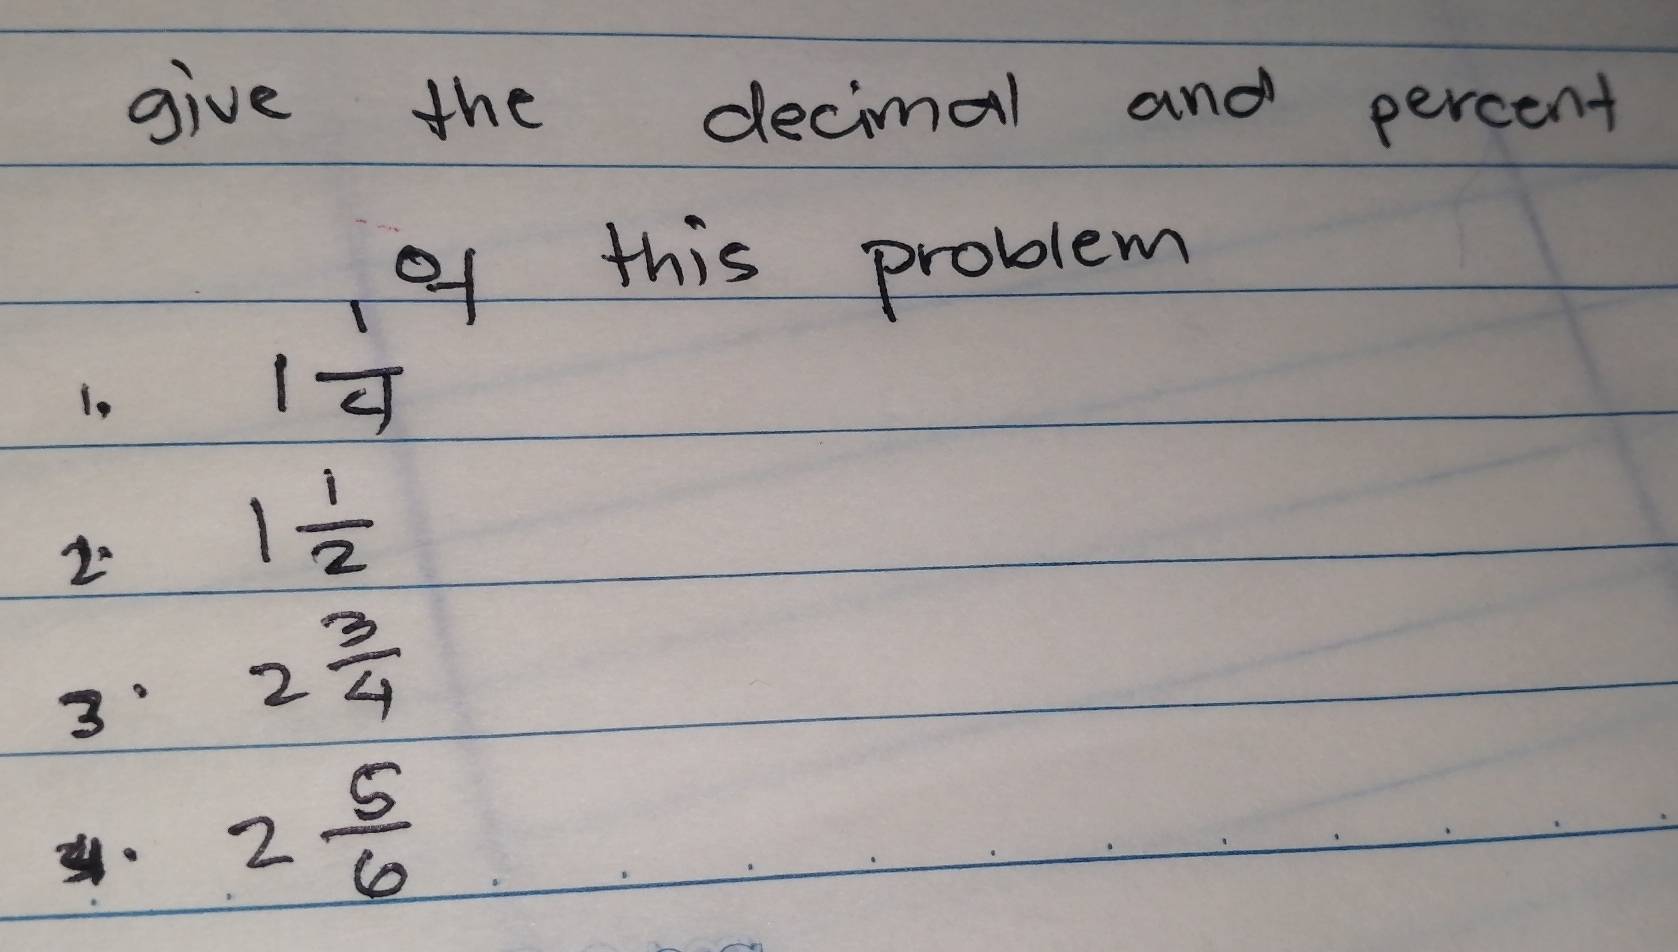 give the decimal and percent
of this problem
1. 1 1/4
2. 1 1/2
3. 2 3/4
4. 2 5/6